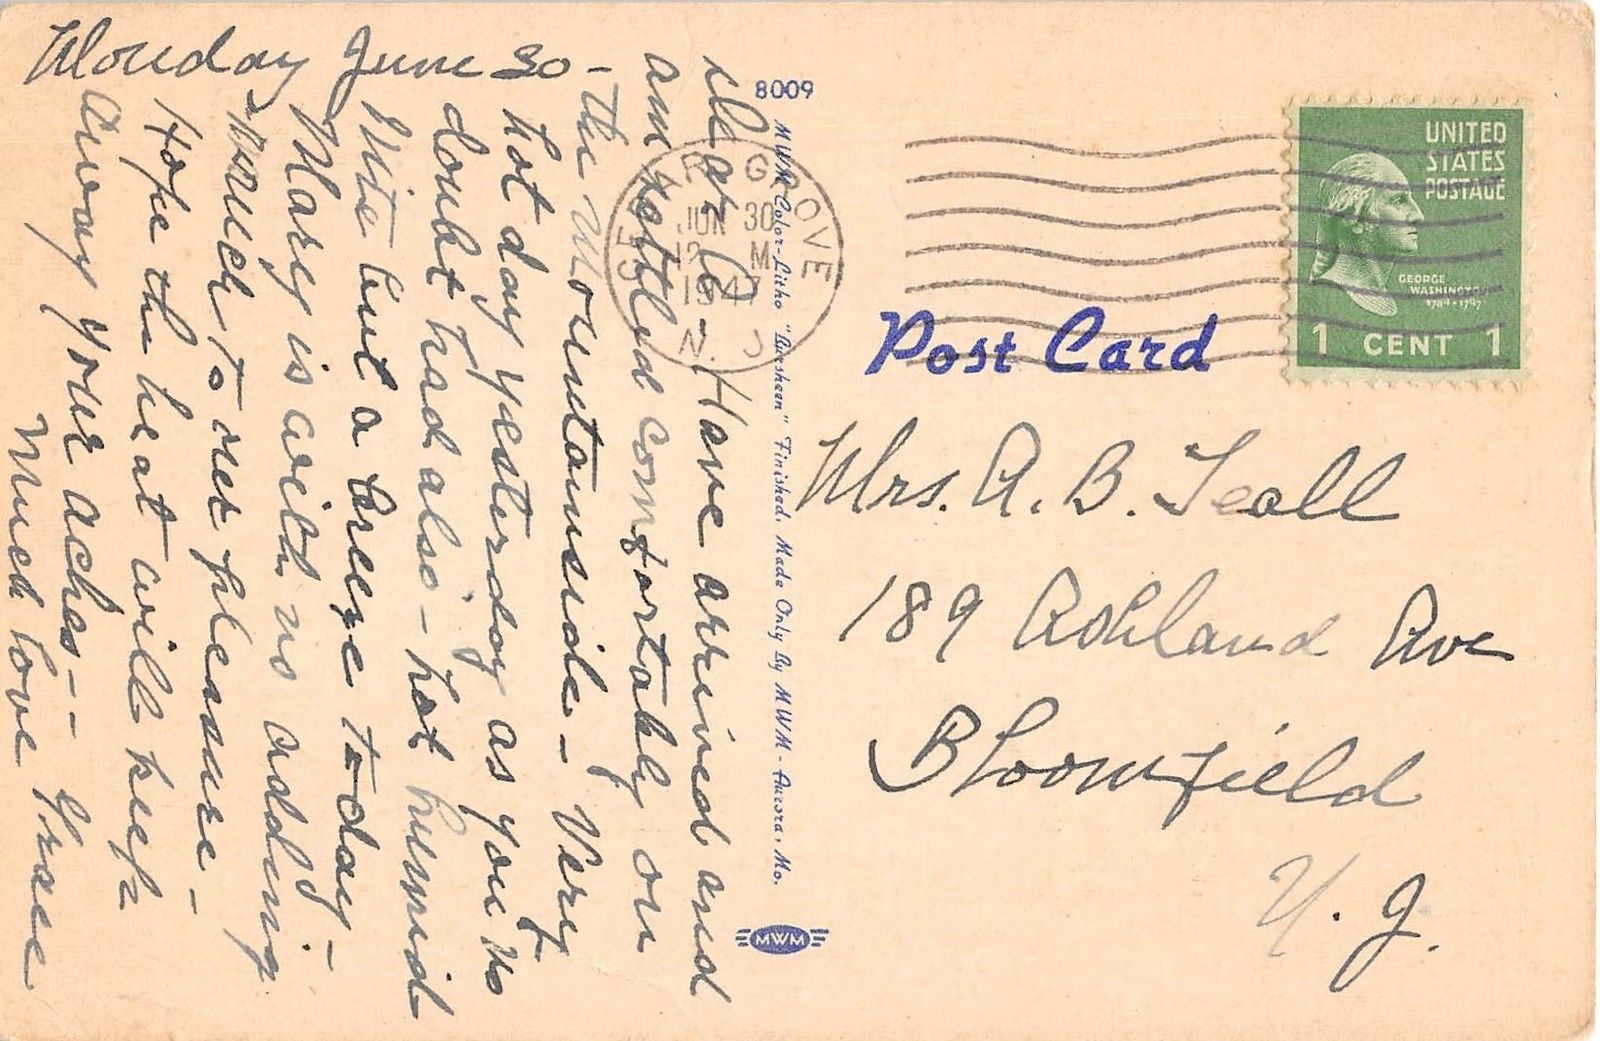 Monday June 30 -
Dear A - Have arrived and
am settled comfortably on
the Mountainside - Very
hot day yesterday as you no
doubt had also - hot humid
Nite but a breeze to-day -
Mary is with us adding
much to our pleasure -
Hope the heat will keep
away your aches --
Much love Grace
8009
MWM Color-Litho "Laesheen" Finished. Made Only By MWM - Aurora, Mo.
MWM
CEDAR GROVE
JUN 30
12 M
1947
N. J
UNITED
STATES
POSTAGE
GEORGE
WASHINGTON
1789-1797
1 CENT 1
Post Card
Mrs. A. B. Teall
189 Ashland Ave
Bloomfield
N. J.